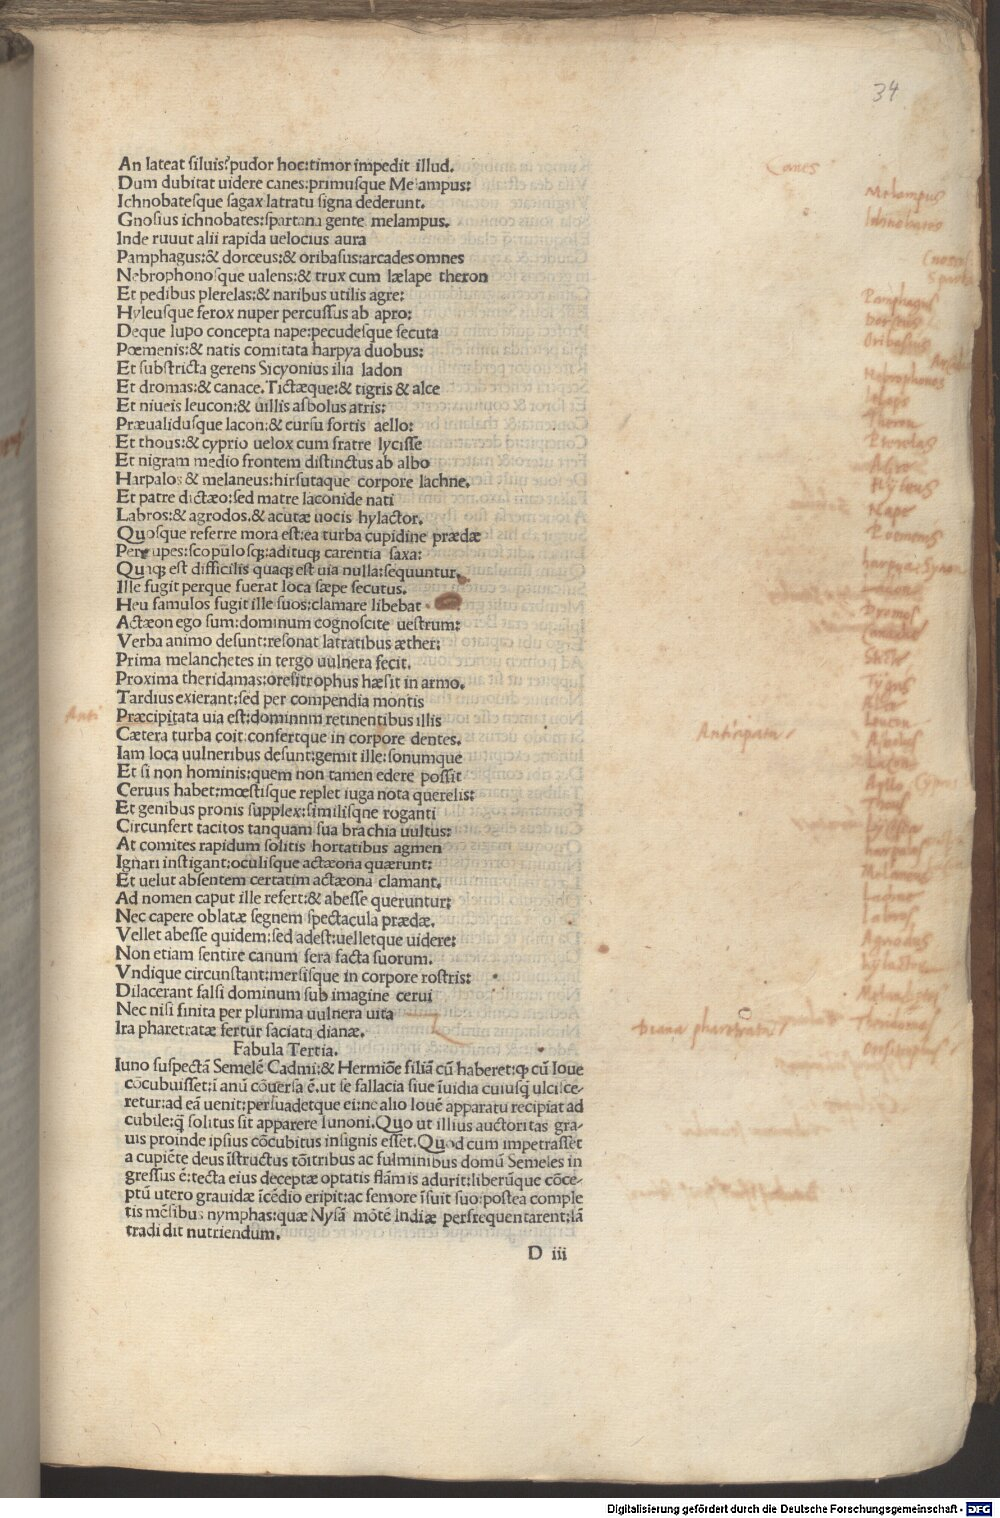 34
An lateat siluis?pudor hoc:timor impedit illud.
Dum dubitat uidere canes:primusque Melampus:
Ichnobatesque sagax latratu signa dederunt.
Gnosius ichnobates:spartana gente melampus.
Inde ruuut alii rapida uelocius aura
Pamphagus:& dorceus:& oribasus:arcades omnes
Nebrophonosque ualens:& trux cum lælape theron
Et pedibus plerelas:& naribus utilis agre:
Hyleusque ferox nuper percussus ab apro:
Deque lupo concepta nape:pecudesque secuta
Pœmenis:& natis comitata harpya duobus:
Et substricta gerens Sicyonius ilia ladon
Et dromas:& canace.Tictæque:& tigris & alce
Et niueis leucon:& uillis asbolus atris:
Præualidusque lacon:& cursu fortis aello:
Et thous:& cyprio uelox cum fratre lycisse
Et nigram medio frontem distinctus ab albo
Harpalos & melaneus:hirsutaque corpore lachne.
Et patre dictæo:sed matre laconide nati
Labros:& agrodos.& acutæ uocis hylactor.
Quosque referre mora est:ea turba cupidine prædæ
Per rupes:scopulosqꝫ:adituqꝫ carentia saxa:
Quaqꝫ est difficilis quaqꝫ est uia nulla:sequuntur.
Ille fugit perque fuerat loca sæpe secutus.
Heu famulos fugit ille suos:clamare libebat
Actæon ego sum:dominum cognoscite uestrum:
Verba animo desunt:resonat latratibus æther:
Prima melanchetes in tergo uulnera fecit.
Proxima theridamas:oresitrophus hæsit in armo.
Tardius exierant:sed per compendia montis
Præcipitata uia est:dominnm retinentibus illis
Cætera turba coit:confertque in corpore dentes.
Iam loca uulneribus desunt:gemit ille:sonumque
Et si non hominis:quem non tamen edere possit
Ceruus habet:mœstisque replet iuga nota querelis:
Et genibus pronis supplex:similisqne roganti
Circunfert tacitos tanquam sua brachia uultus:
At comites rapidum solitis hortatibus agmen
Ignari instigant:oculisque actæona quærunt:
Et uelut absentem certatim actæona clamant.
Ad nomen caput ille refert:& abesse queruntur:
Nec capere oblatæ segnem spectacula prædæ.
Vellet abesse quidem:sed adest:uelletque uidere:
Non etiam sentire canum fera facta suorum.
Vndique circunstant:mersisque in corpore rostris:
Dilacerant falsi dominum sub imagine cerui
Nec nisi finita per plurima uulnera uita
Ira pharetratæ fertur saciata dianæ.
Fabula Tertia.
Iuno suspectā Semelē Cadmi:& Hermiōe filiā cū haberet:ꝙ cū Ioue
cōcubuisset:i anū cōuersa ē.ut se fallacia siue īuidia cuiusq̄ ulcisce-
retur:ad eā uenit:persuadetque ei:ne alio Iouē apparatu recipiat ad
cubile:q̄ solitus sit apparere Iunoni.Quo ut illius auctoritas gra-
uis proinde ipsius cōcubitus insignis esset.Quod cum impetrasset
a cupiēte deus īstructus tōitribus ac fulminibus domū Semeles in
gressus ē:tecta eius deceptæ optatis flāmis adurit:liberūque cōce-
ptū utero grauidæ īcēdio eripit:ac femore īsuit suo:postea comple
tis mēsibus nymphas:quæ Nysā mōtē Indiæ persrequentarent:īā
tradidit nutriendum.
D iii
Canes
Melampus
Ichnobates
Pamphagus
Dorceus
Oribasus
Nebrophonos
Lelaps
Theron
Pterelas
Agre
Hyleus
Nape
Poemenis
harpya
Dromos
Canache
Sticte
Tygris
Alce
Leucon
Asbolus
Lacon
Ayllo
Thous
harpalos
Melaneus
Lachne
Labros
Agrodus
hylactor
Theridamas
Oresitrophus
Diana pharetrata
Digitalisierung gefördert durch die Deutsche Forschungsgemeinschaft - DFG